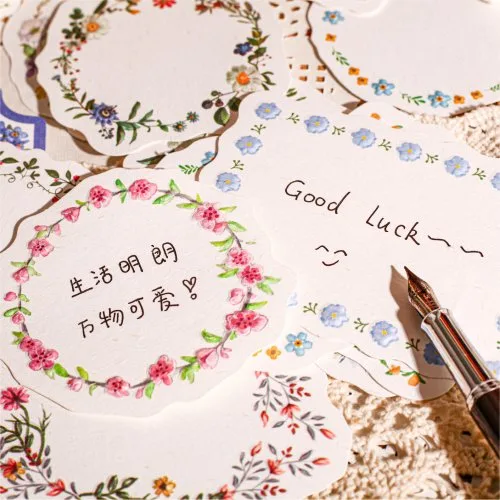 生活明朗
万物可爱!
Good Luck~~